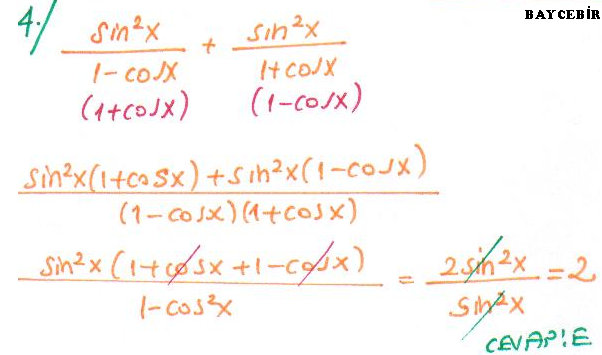 BAYCEBİR
4./ sin²x/(1-cosx) + sin²x/(1+cosx)
(1+cosx) (1-cosx)
sin²x(1+cosx)+sin²x(1-cosx)/(1-cosx)(1+cosx)
sin²x(1+cosx+1-cosx)/1-cos²x = 2sin²x/sin²x = 2
CEVAP:E